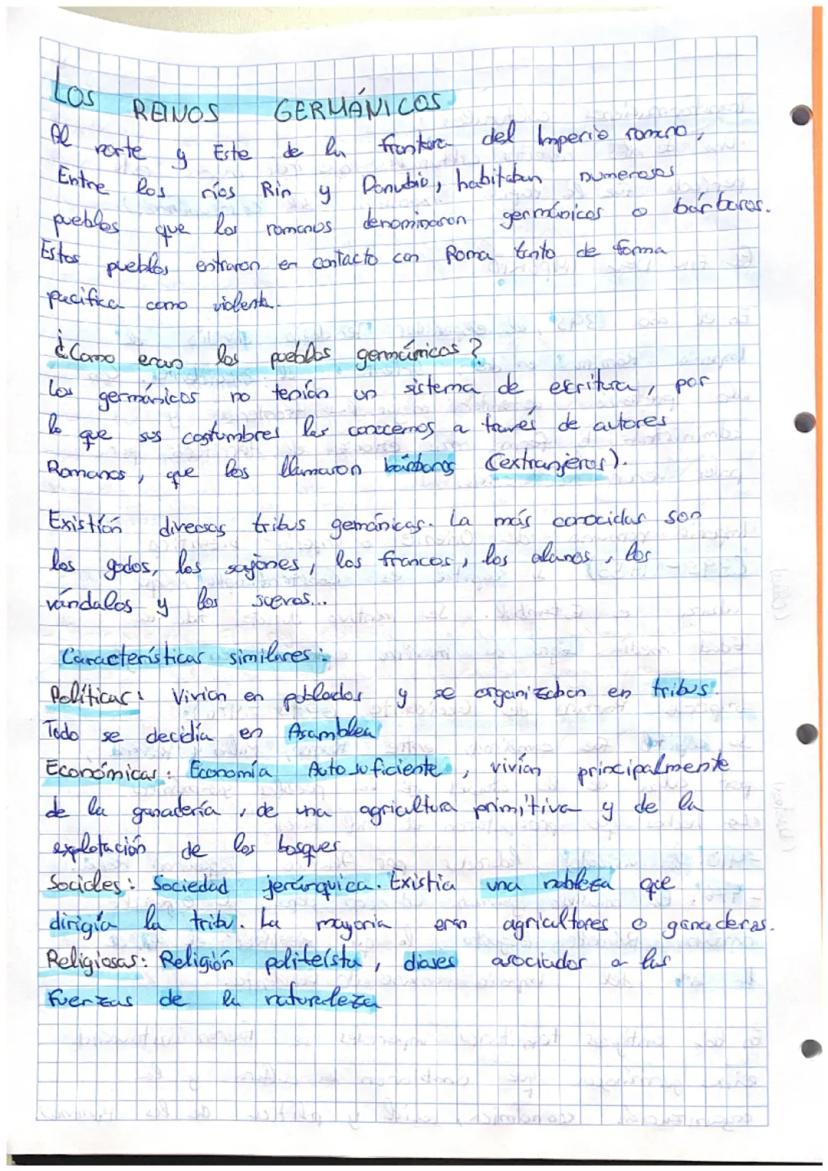 LOS REINOS GERMÁNICOS
Al norte y Este de la frontera del Imperio romano,
Entre los ríos Rin y Danubio, habitaban numerosos
pueblos que los romanos denominaron germánicos o bárbaros.
Estos pueblos entraron en contacto con Roma tanto de forma
pacifica como violenta.
¿Como eran los pueblos germánicos?
Los germánicos no tenían un sistema de escritura, por
lo que sus costumbres las conocemos a través de autores
Romanos, que los llamaron bárbaros (extranjeros).
Existían diversas tribus gemánicas. La más conocidas son
los godos, los sajones, los francos, los alanos, los
vándalos y los suevos...
Características similares:
Políticas: Vivian en poblados y se organizaban en tribus.
Todo se decidía en Asamblea
Económicas: Economía Autosuficiente, vivían principalmente
de la ganadería, de una agricultura primitiva y de la
explotación de los bosques
Sociales: Sociedad jerárquica. Existia una nobleza que
dirigía la tribu. La mayoria eran agricultores o ganaderas.
Religiosas: Religión politeísta, dioses asociados a las
fuerzas de la naturaleza